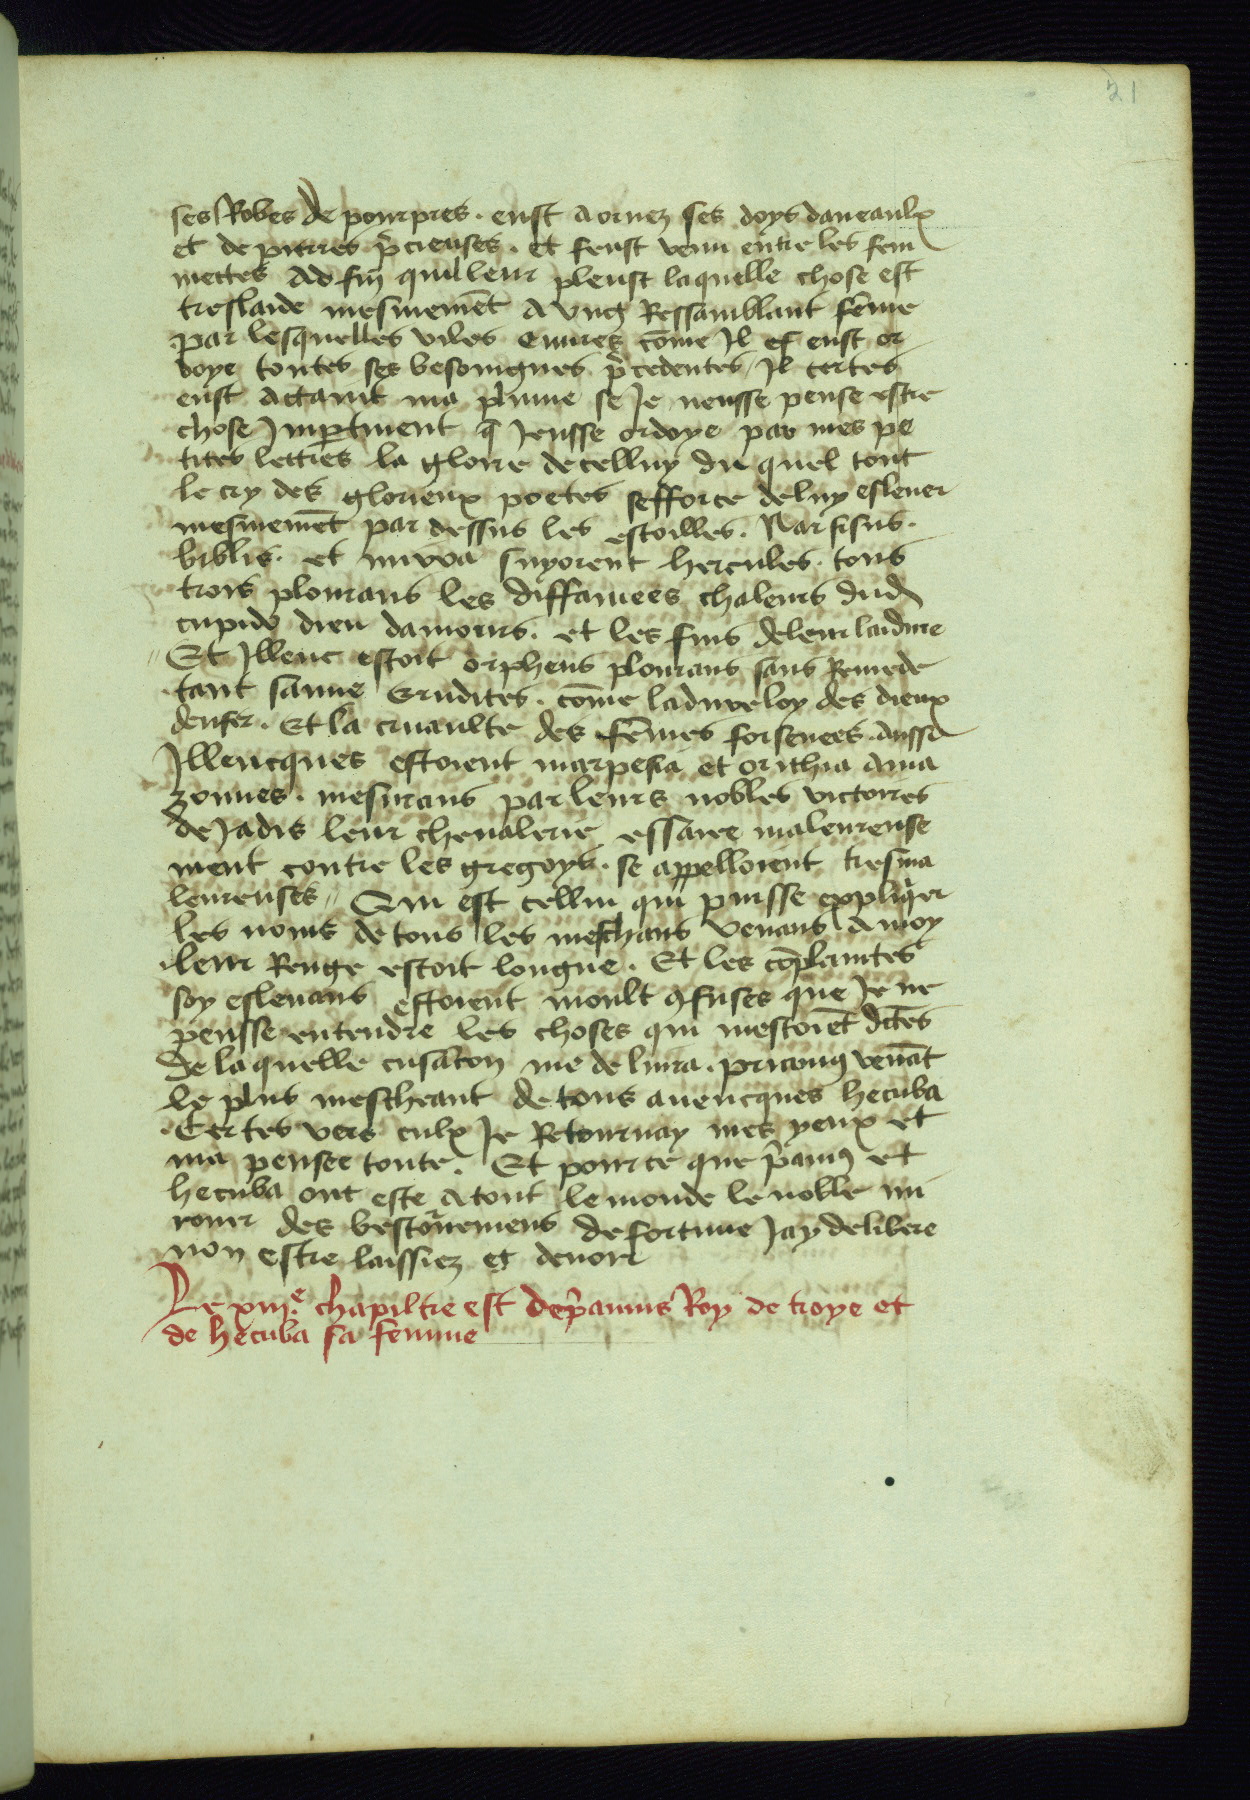 21
ses Robes de pourpres. eust aornez ses doys daneaulx
et de pierres p̃cieuses. et feust venu entre les fem
mettes Ad fin quil leur pleust laquelle chose est
treslaide mesmemẽt A vng Ressamblant fẽme
par lesquelles viles euures cõme Il eust or
doye toutes ses besoingnes p̃cedentes / Il certes
eust actaint ma plume se Je neusse pense estre
chose Imptinent q̃ Jeusse ordoye par mes pe
tites lettres la gloire de celluy du quel tout
le cry des glorieux poetes sefforce deluy esleuer
mesmemẽt par dessus les estoilles. Narsisus.
biblis. et mirra suyorent hercules. tous
trois plourans les diffamees chaleurs dud
cupido dieu damours. et les fins deleur laidure
Et Illenc estoit orpheus plourans sans Remede
tant sa erudites. cõme la dure loy des dieux
denfer. Et la cruaulte des fẽmes forsenees Aussi
Illencques estoient marpesia et orithia Ama
zonnes. mesurans par leurs nobles victoires
de Jadis leur cheualerie essaiee maleureuse
ment contre les gregoys. se appelloient tresma
leureuses // Qui est cellui qui puisse expliq̃er
les noms de tous les meschans venans A moy
leur Renge estoit longue. Et les cõplaintes
soy esleuans estoient moult ꝯfuses que Je ne
peusse entendre les choses qui mestoiẽt dc̃es
De la quelle cusacõn me deliura. priamus venãt
le plus mescheant de tous auencques hecuba
Certes vers eulx Je Retournay mes yeux et
ma pensee toute. Et pource que p̃amus et
hecuba ont este a tout le monde le noble mi
rouer des bestournemens de fortune Jay delibere
non estre laissiez et
Le xiii.e chapiltre est de p̃amus Roy de troye et
de hecuba sa femme